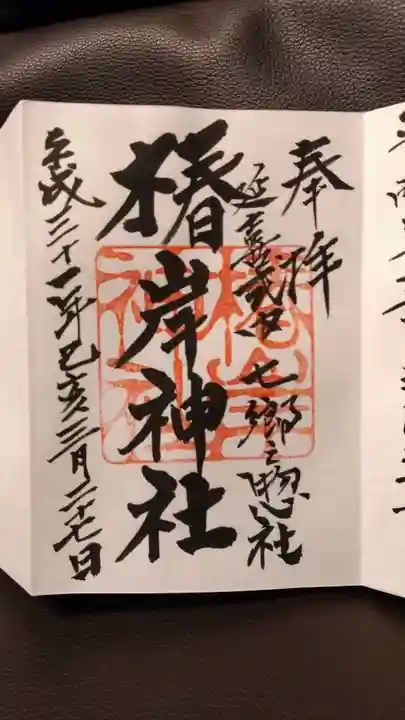 奉拝
延喜式内七郷之惣社
椿岸神社
平成三十一年己亥三月二十七日
椿岸
神社